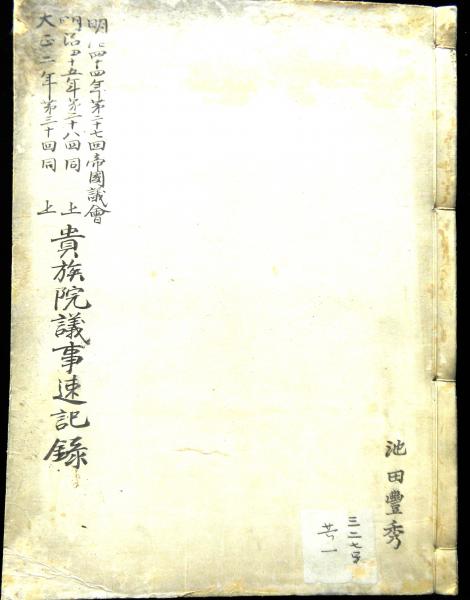 明治四十四年第二十七回帝國議會
明治四十五年第二十八回同上
大正二年第三十回同上
貴族院議事速記錄
池田豐秀
三二七